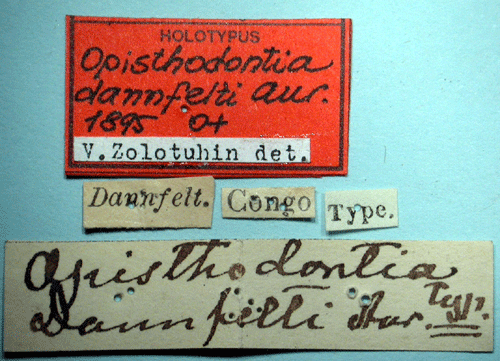 HOLOTYPUS
Opisthodontia
dannfelti Aur.
1895 ♀
V. Zolotuhin det.
Dannfelt.
Congo
Type.
Opisthodontia
Dannfelti Aur. Typ.